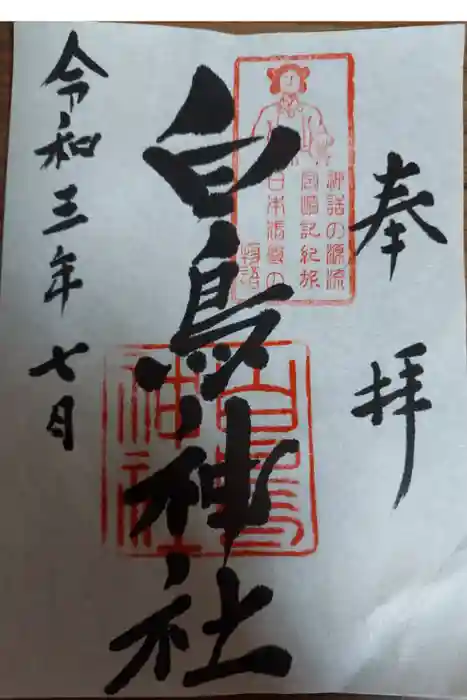 奉拝
神話の源流
国順記紀旅
日本
物語
白鳥神社
白鳥
神社
令和三年七月